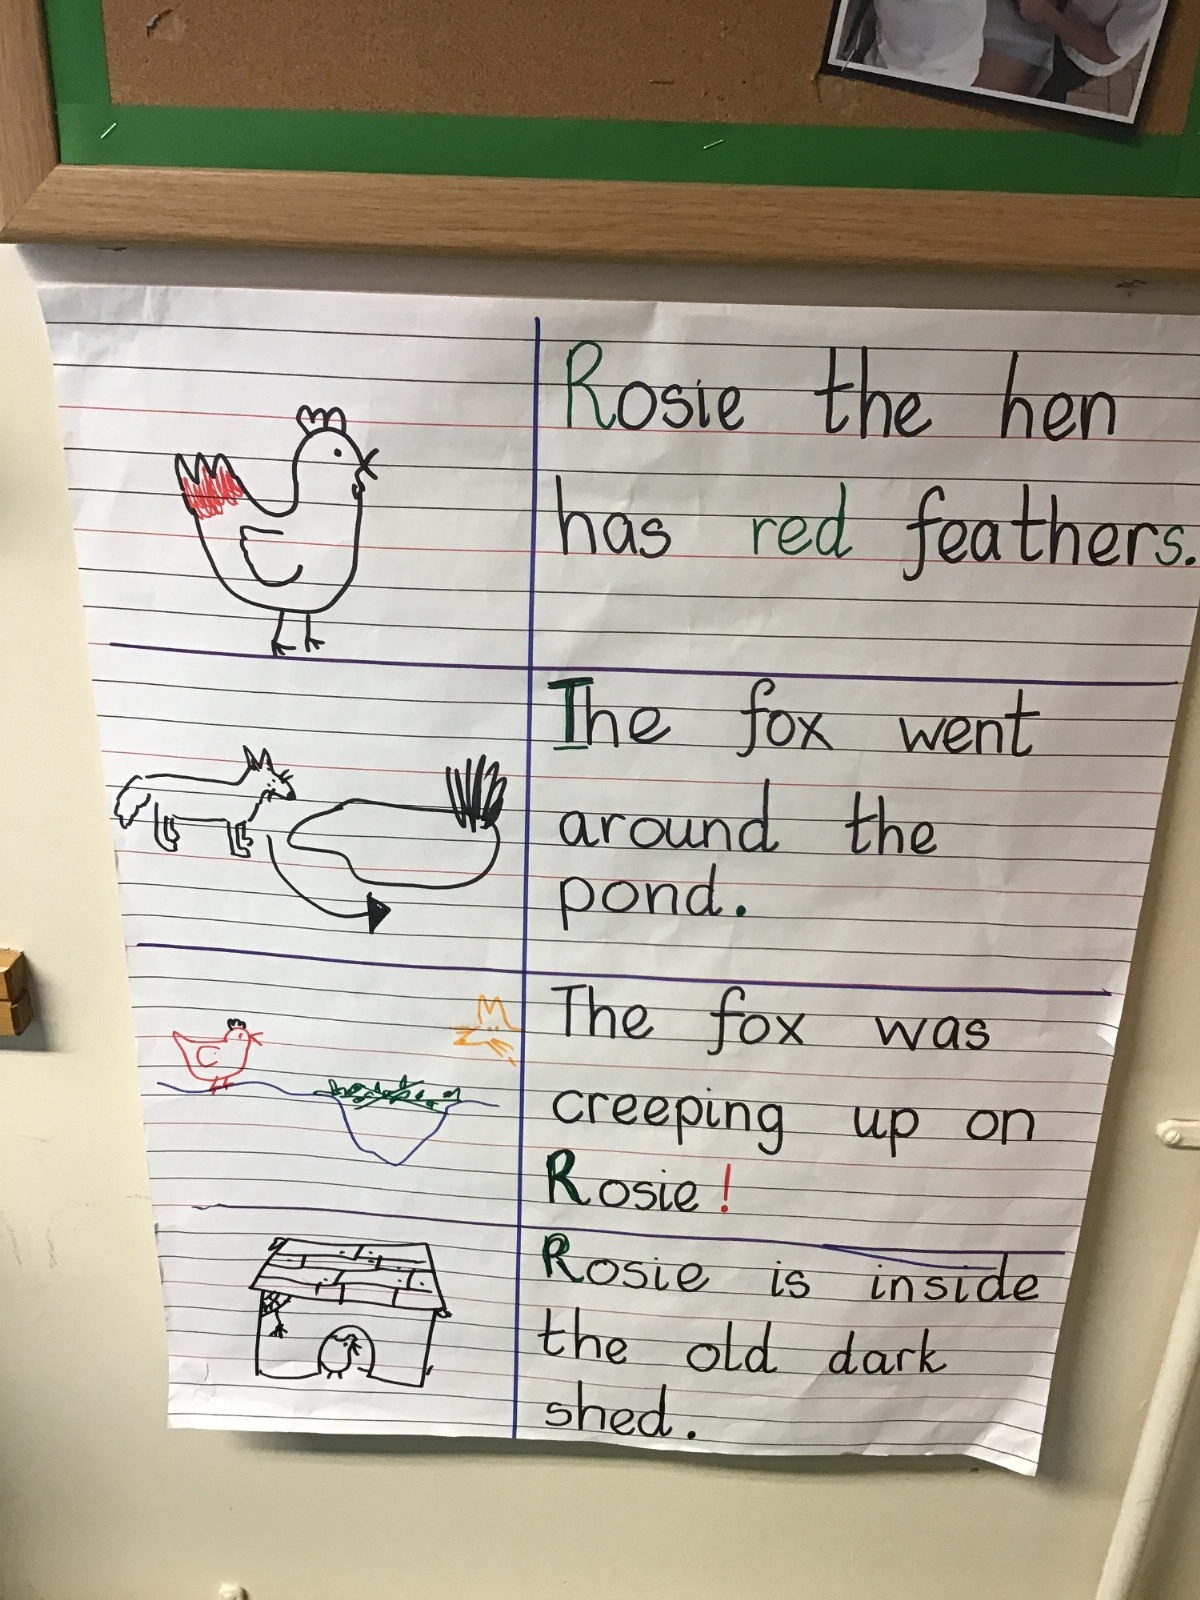 Rosie the hen
has red feathers.
The fox went
around the
pond.
The fox was
creeping up on
Rosie!
Rosie is inside
the old dark
shed.